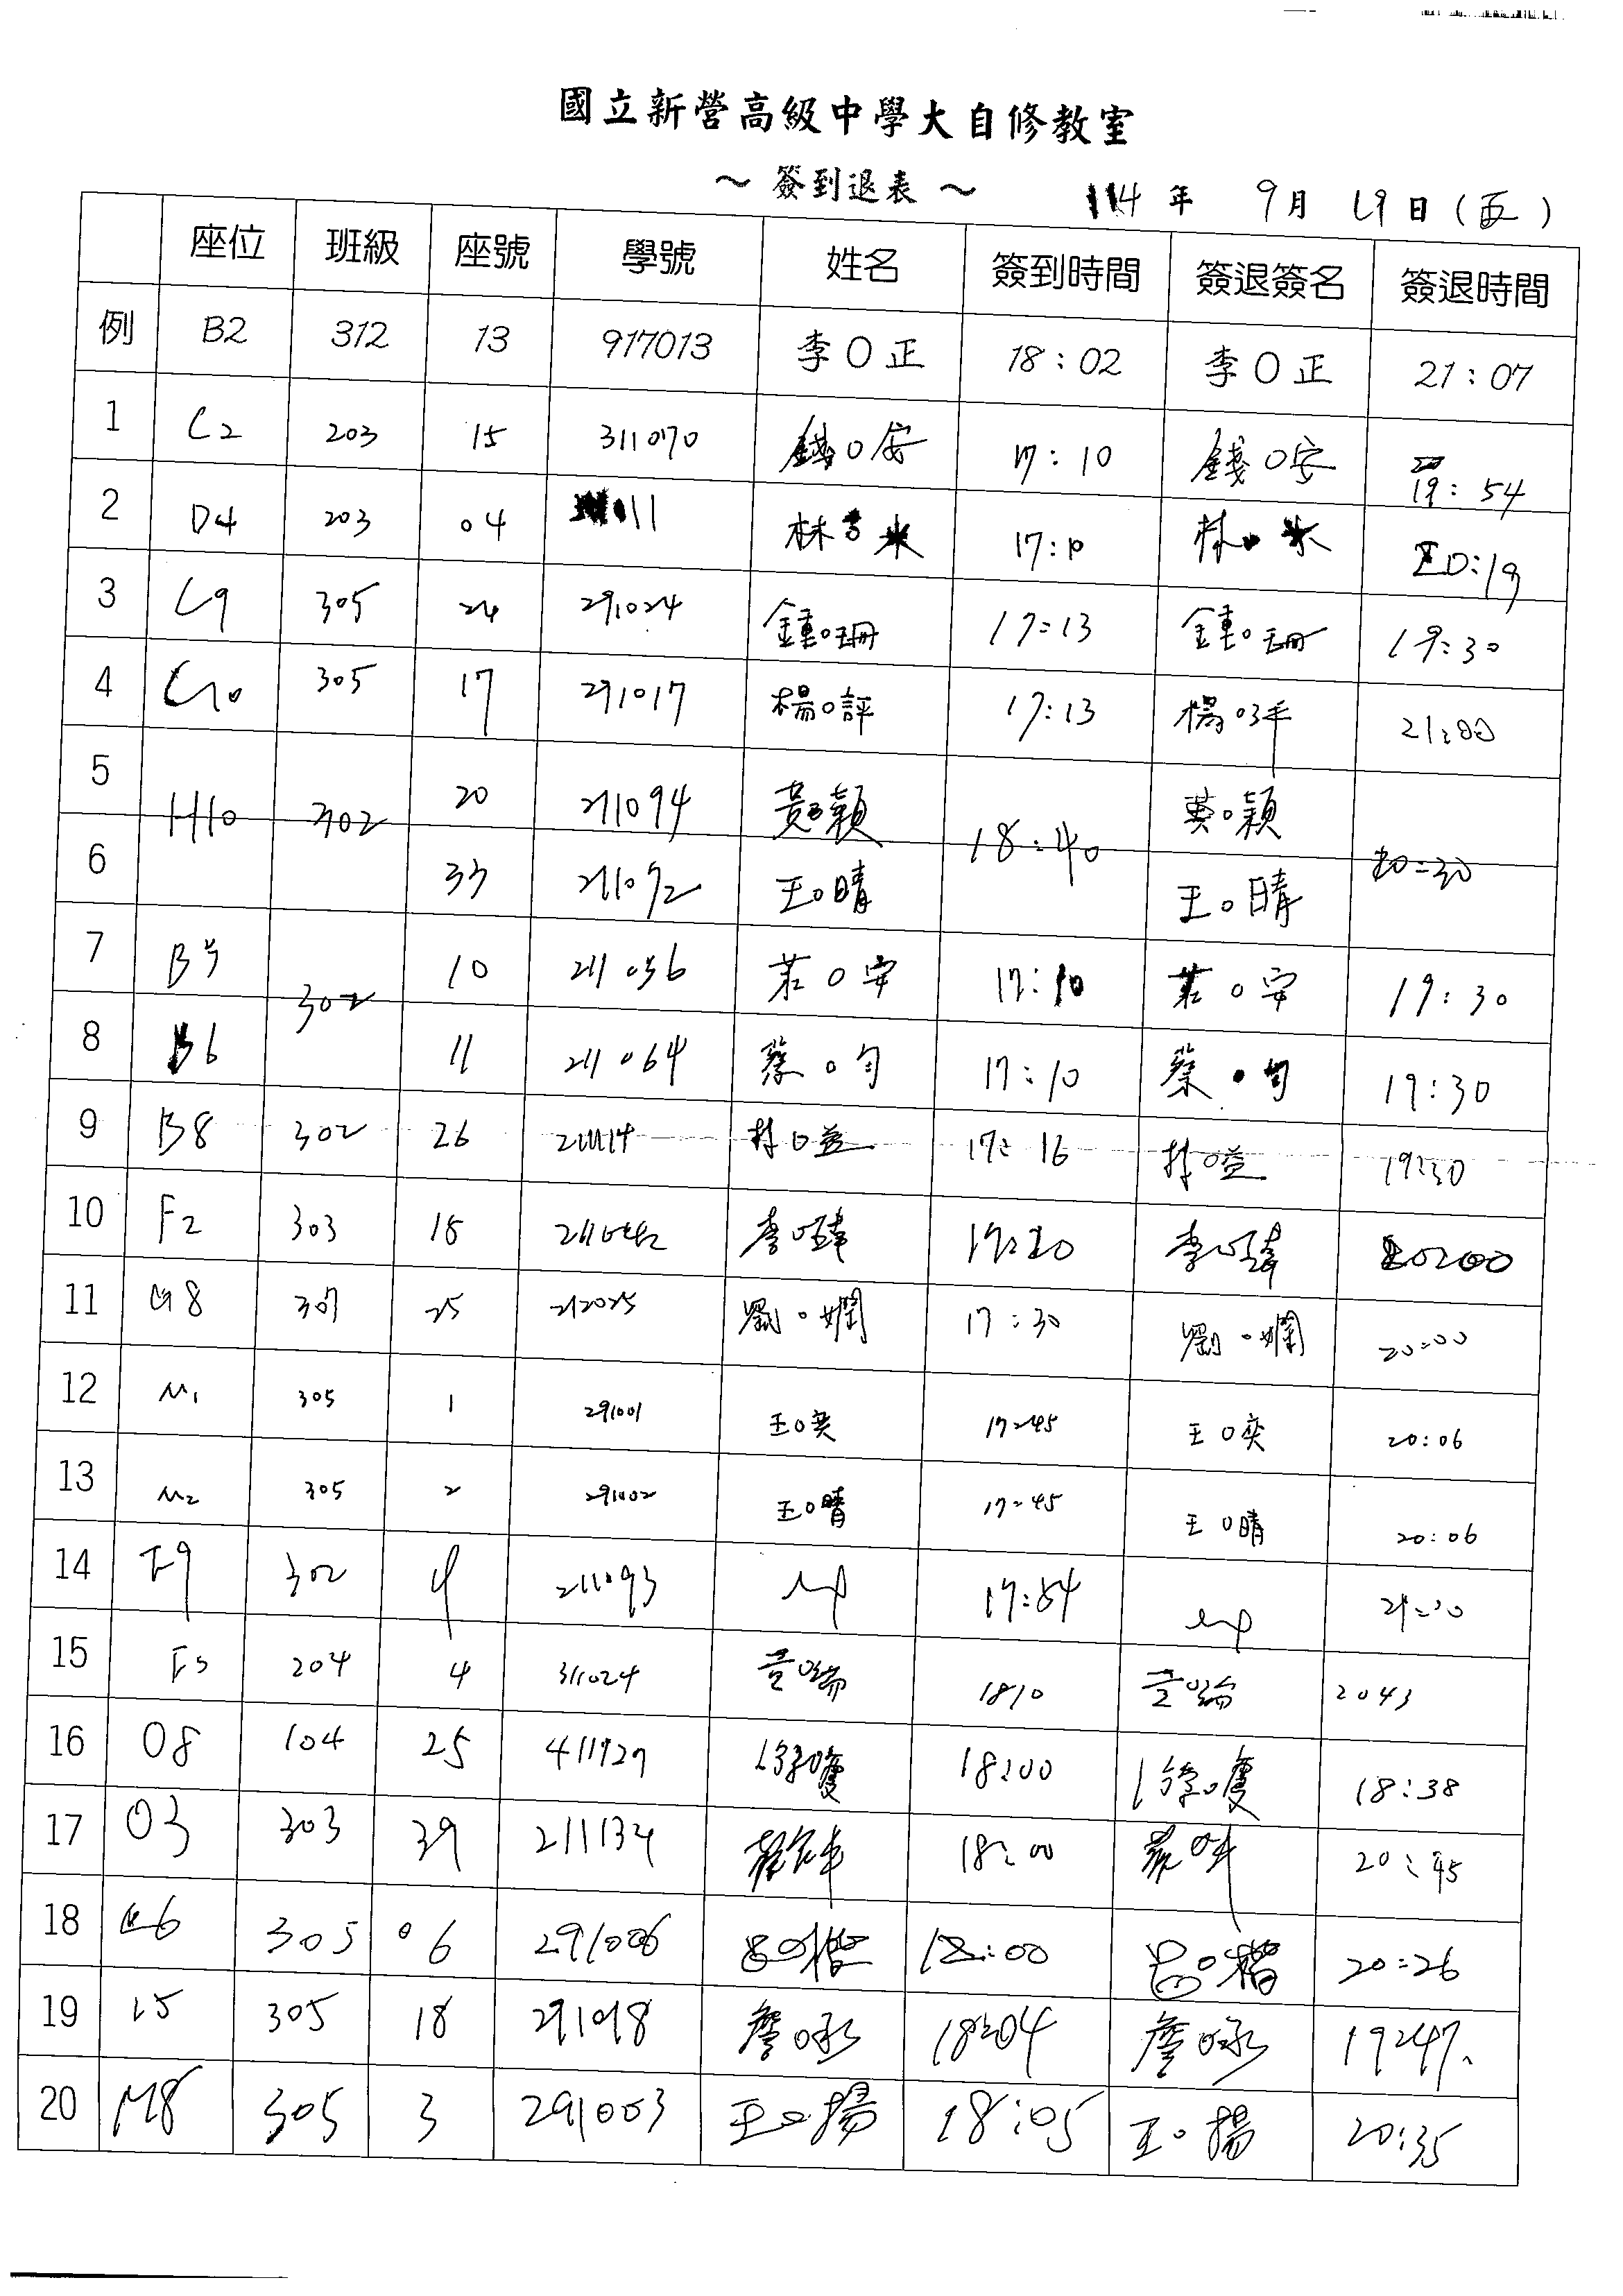 國立新營高級中學大自修教室
～ 簽到退表 ～ 114 年 9 月 19 日 (五)
座位 班級 座號 學號 姓名 簽到時間 簽退簽名 簽退時間
例 B2 312 13 917013 李O正 18:02 李O正 21:07
1 C2 203 15 311070 錢O安 17:10 錢O安 19:54
2 D4 203 04 林 17:10 林 20:19
3 C9 305 24 291024 鍾O珊 17:13 鍾O珊 19:30
4 C10 305 17 291017 楊O評 17:13 楊O評 21:00
5 H10 302 20 211094 黃O穎 18:40 黃O穎 20:30
6 33 211072 王O晴 王O晴
7 B5 302 10 211056 莊O安 17:10 莊O安 19:30
8 B6 11 211064 蔡O勻 17:10 蔡O勻 19:30
9 B8 302 26 211114 林O益 17:16 林O益 19:30
10 F2 303 18 李O瑋 17:20 李O瑋 20:00
11 G8 307 25 212025 劉O嫻 17:30 劉O嫻 20:00
12 M1 305 1 291001 王O奕 17:45 王O奕 20:06
13 M2 305 2 291002 王O晴 17:45 王O晴 20:06
14 F9 302 9 211093 17:54
15 F5 204 4 311024 1810 2043
16 O8 104 25 18:00 18:38
17 O3 303 39 211134 18:00 20:45
18 E6 305 06 291006 呂O楷 18:00 呂O楷 20:26
19 I5 305 18 291018 廖O承 18:04 廖O承 19:47
20 M8 305 3 291003 王O揚 18:05 王O揚 20:35